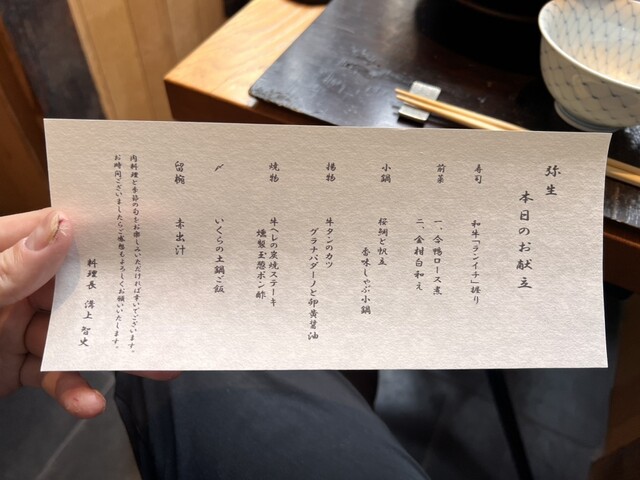 弥生
本日のお献立
寿司
和牛「ランイチ」握り
前菜
一、合鴨ロース煮
二、金柑白和え
小鍋
桜鯛と帆立
香味しゃぶ小鍋
揚物
牛タンのカツ
グラナパダーノと卵黄醤油
焼物
牛ヘレの炭焼ステーキ
燻製玉葱ポン酢
〆
いくらの土鍋ご飯
留椀
赤出汁
肉料理と季節の旬をお楽しみいただければ幸いでございます。
お時間ございましたらご感想もよろしくお願いいたします。
料理長 溝上 智史